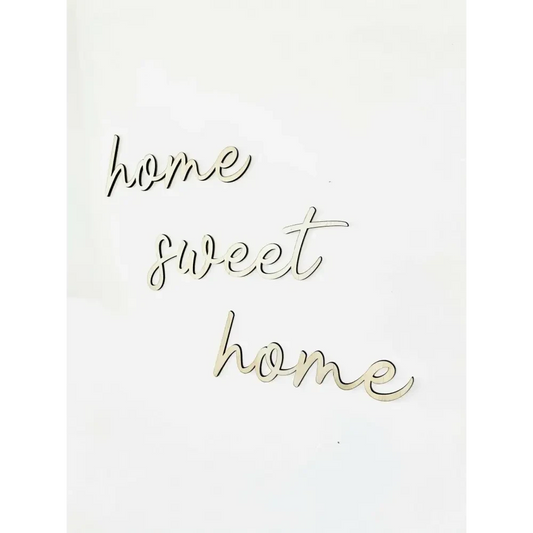 home
sweet
home